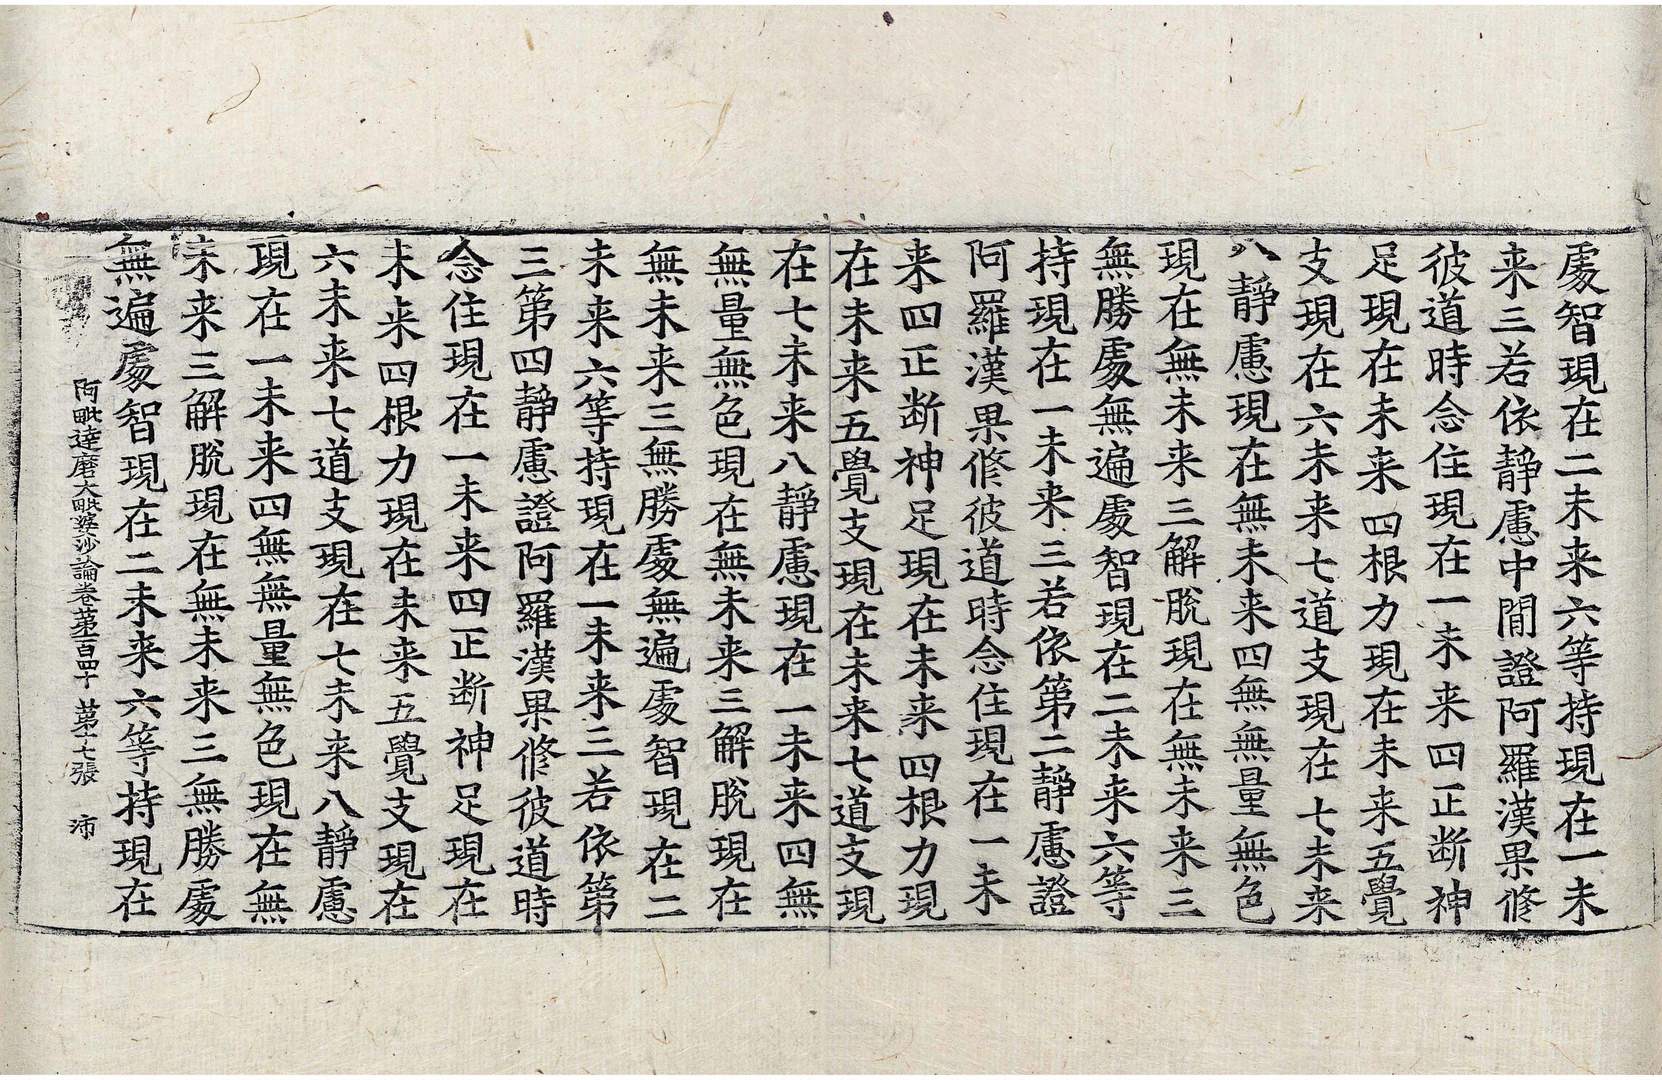 處智現在二未来六等持現在一未
来三若依靜慮中間證阿羅漢果修
彼道時念住現在一未来四正断神
足現在未来四根力現在未来五覺
支現在六未来七道支現在七未来
八靜慮現在無未来四無無量無色
現在無未来三解脫現在無未来三
無勝處無遍處智現在二未来六等
持現在一未来三若依第二靜慮證
阿羅漢果修彼道時念住現在一未
来四正断神足現在未来四根力現
在未来五覺支現在未来七道支現
在七未来八靜慮現在一未来四無
無量無色現在無未来三解脫現在
無未来三無勝處無遍處智現在二
未来六等持現在一未来三若依第
三第四靜慮證阿羅漢果修彼道時
念住現在一未来四正断神足現在
未来四根力現在未来五覺支現在
六未来七道支現在七未来八靜慮
現在一未来四無無量無色現在無
未来三解脫現在無未来三無勝處
無遍處智現在二未来六等持現在
阿毗達磨大毗婆沙論卷第一百四十 第十七張 沛